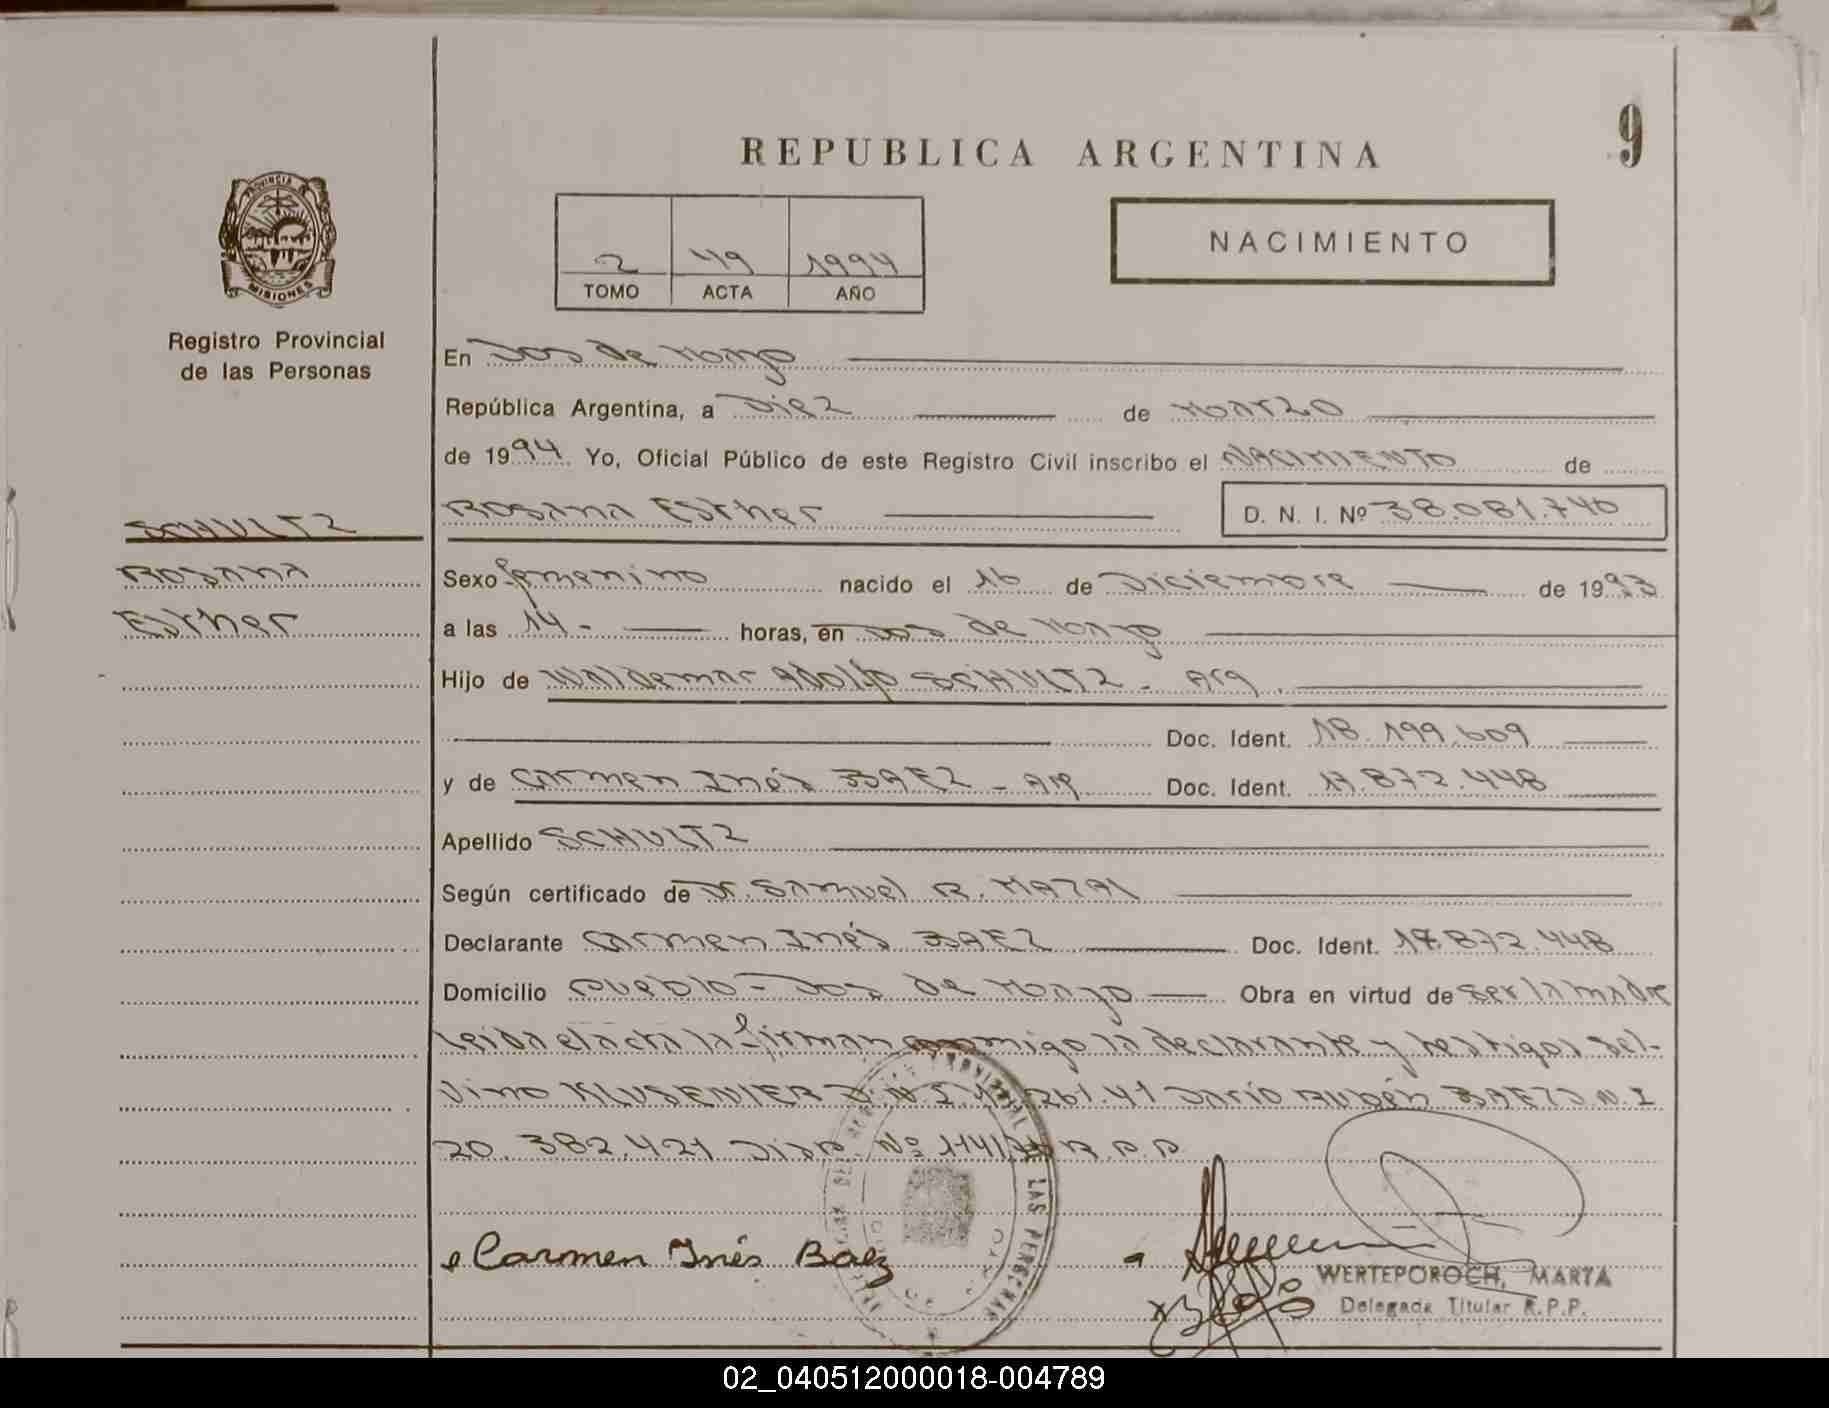 9
REPUBLICA ARGENTINA
PROVINCIA
MISIONES
Registro Provincial
de las Personas
2 49 1994
TOMO ACTA AÑO
NACIMIENTO
En Dos de Mayo
República Argentina, a Diez de Marzo
de 1994 Yo, Oficial Público de este Registro Civil inscribo el NACIMIENTO de
SCHULTZ
Rosana Esther D. N. I. Nº 38.081.740
Rosana
Esther
Sexo femenino nacido el 16 de Diciembre de 1993
a las 14- horas, en Dos de Mayo
Hijo de Waldemar Adolfo SCHULTZ - Arg.
Doc. Ident. 18.199.609
y de Carmen Inés BAEZ - Arg Doc. Ident. 17.872.448
Apellido SCHULTZ
Según certificado de Dr. Samuel R.
Declarante Carmen Inés BAEZ Doc. Ident. 17.872.448
Domicilio Pueblo - Dos de Mayo Obra en virtud de ser la madre
Leida el acta la firman conmigo la declarante y testigos Sel-
vino KLUSENER D.N.I. Darío Rubén BAEZ D.N.I
20.382.421 Disp. Nº R.P.P
Carmen Inés Baez
WERTEPOROCH, MARTA
Delegada Titular R.P.P.
02_040512000018-004789